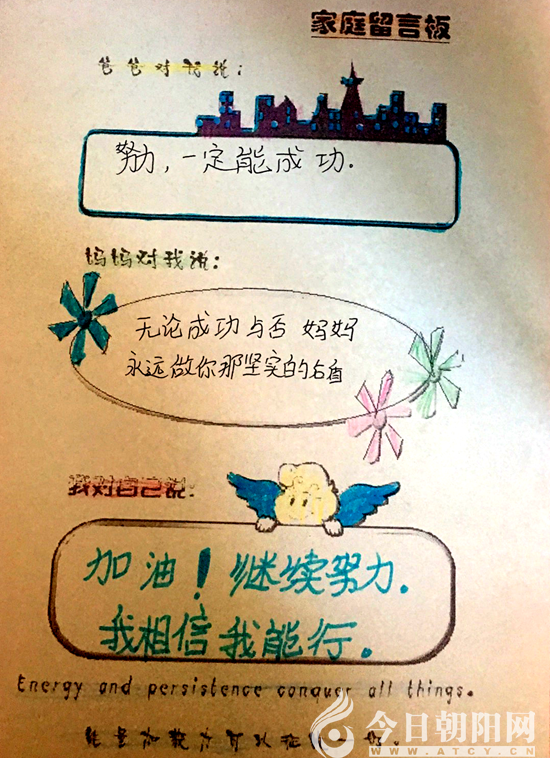 家庭留言板
爸爸对我说：
努力，一定能成功.
妈妈对我说：
无论成功与否 妈妈
永远做你那坚实的后盾
我对自己说：
加油！继续努力.
我相信我能行.
Energy and persistence conquer all things.
能量加毅力可以征服一切。
今日朝阳网
WWW.ATCY.CN